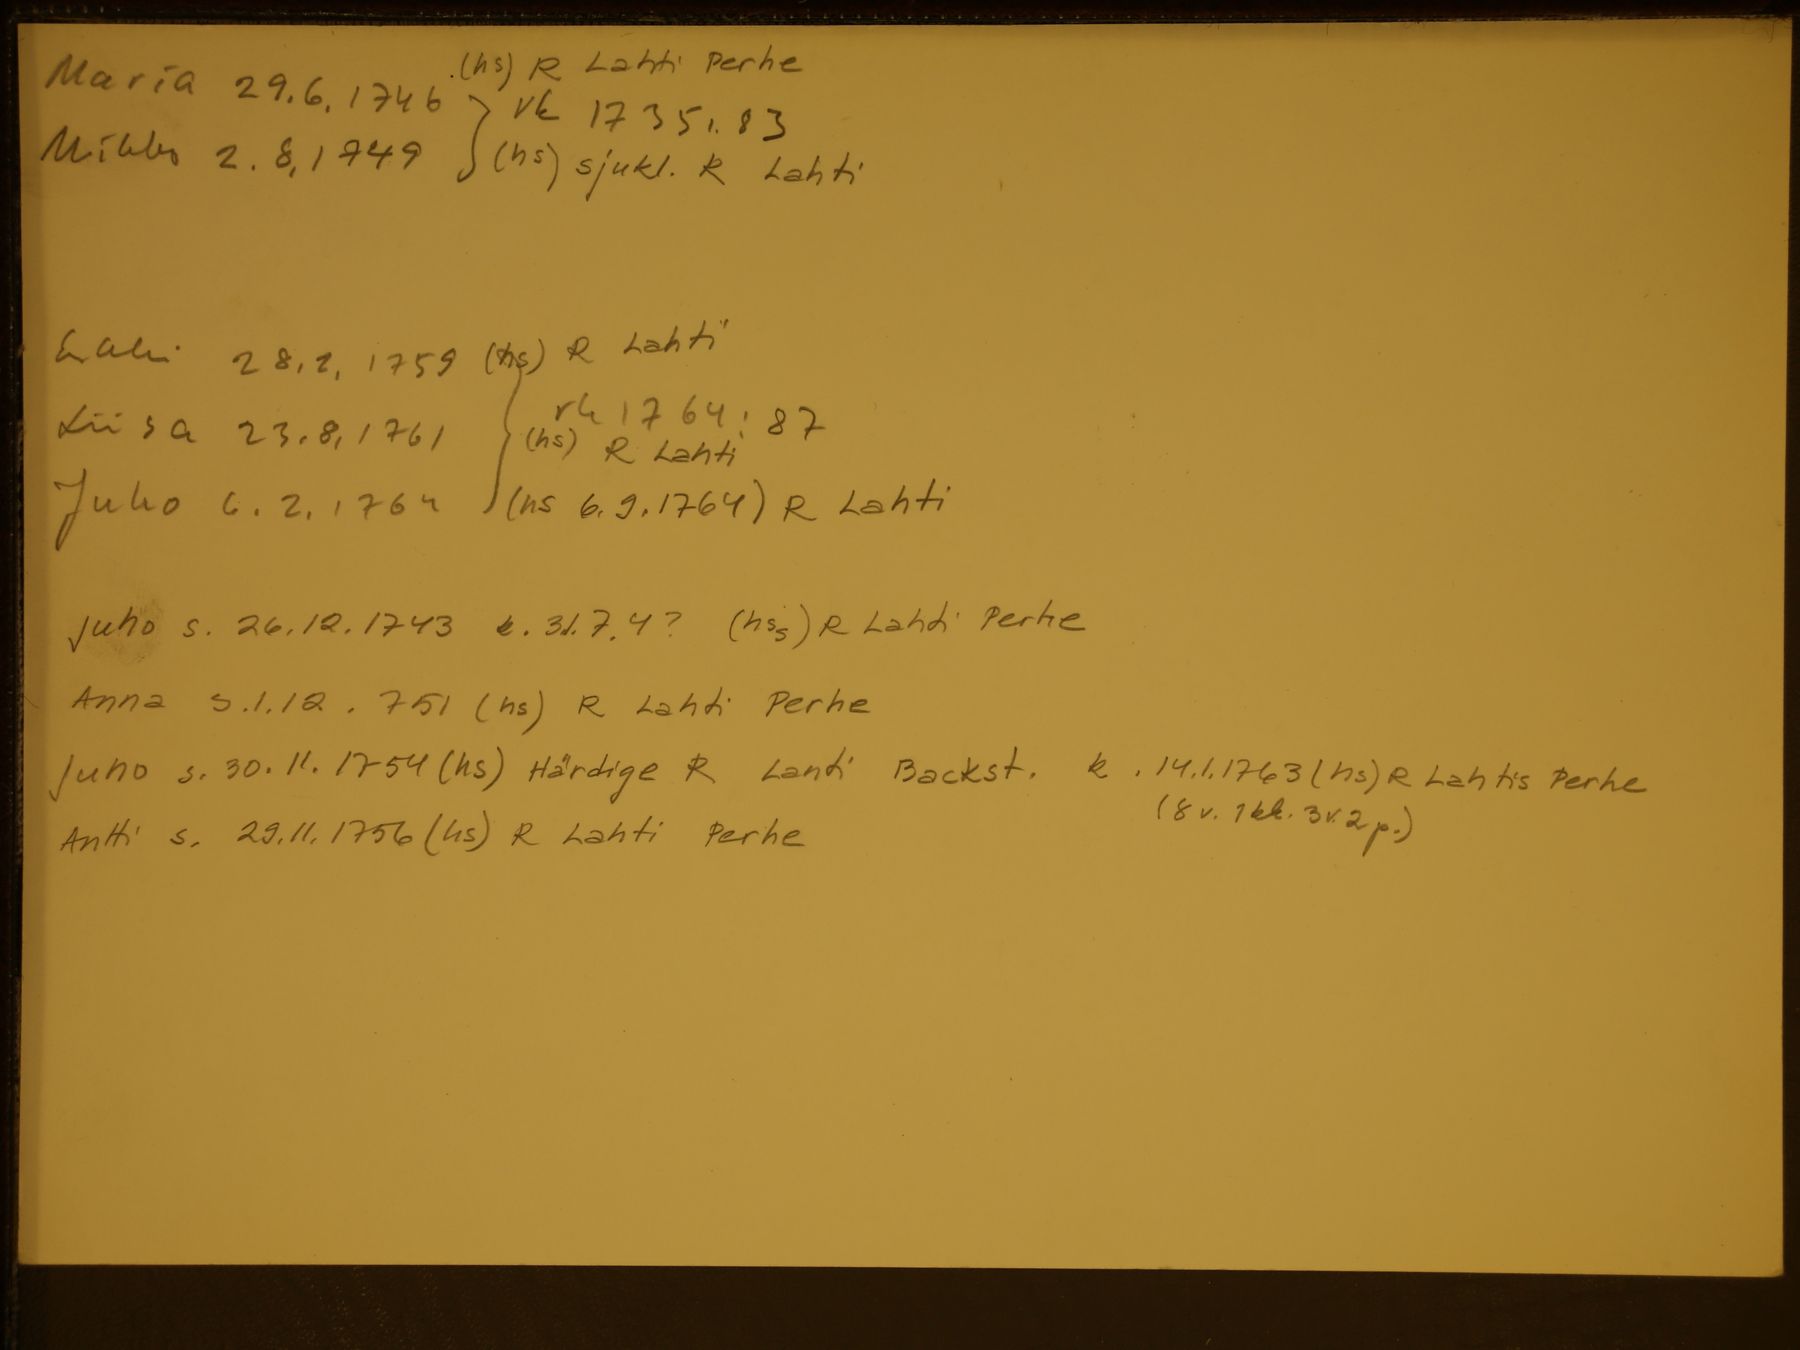 Maria 29.6.1746 (hs) R Lahti Perhe
} rk 1735:83
Mikko 2.8.1749 (hs) sjukl. R Lahti
Erkki 28.2.1759 (hs) R Lahti
} rk 1764:87
Liisa 23.8.1761 (hs) R Lahti
Juho 6.2.1764 (hs 6.9.1764) R Lahti
Juho s. 26.12.1743 k. 31.7.4? (hss) R Lahti Perhe
Anna s.1.12.751 (hs) R Lahti Perhe
Juho s. 30.11.1754 (hs) Härdige R Lahti Backst. k. 14.1.1763 (hs) R Lahtis Perhe
(8 v. 1 kk. 3 v. 2 p.)
Antti s. 29.11.1756 (hs) R Lahti Perhe